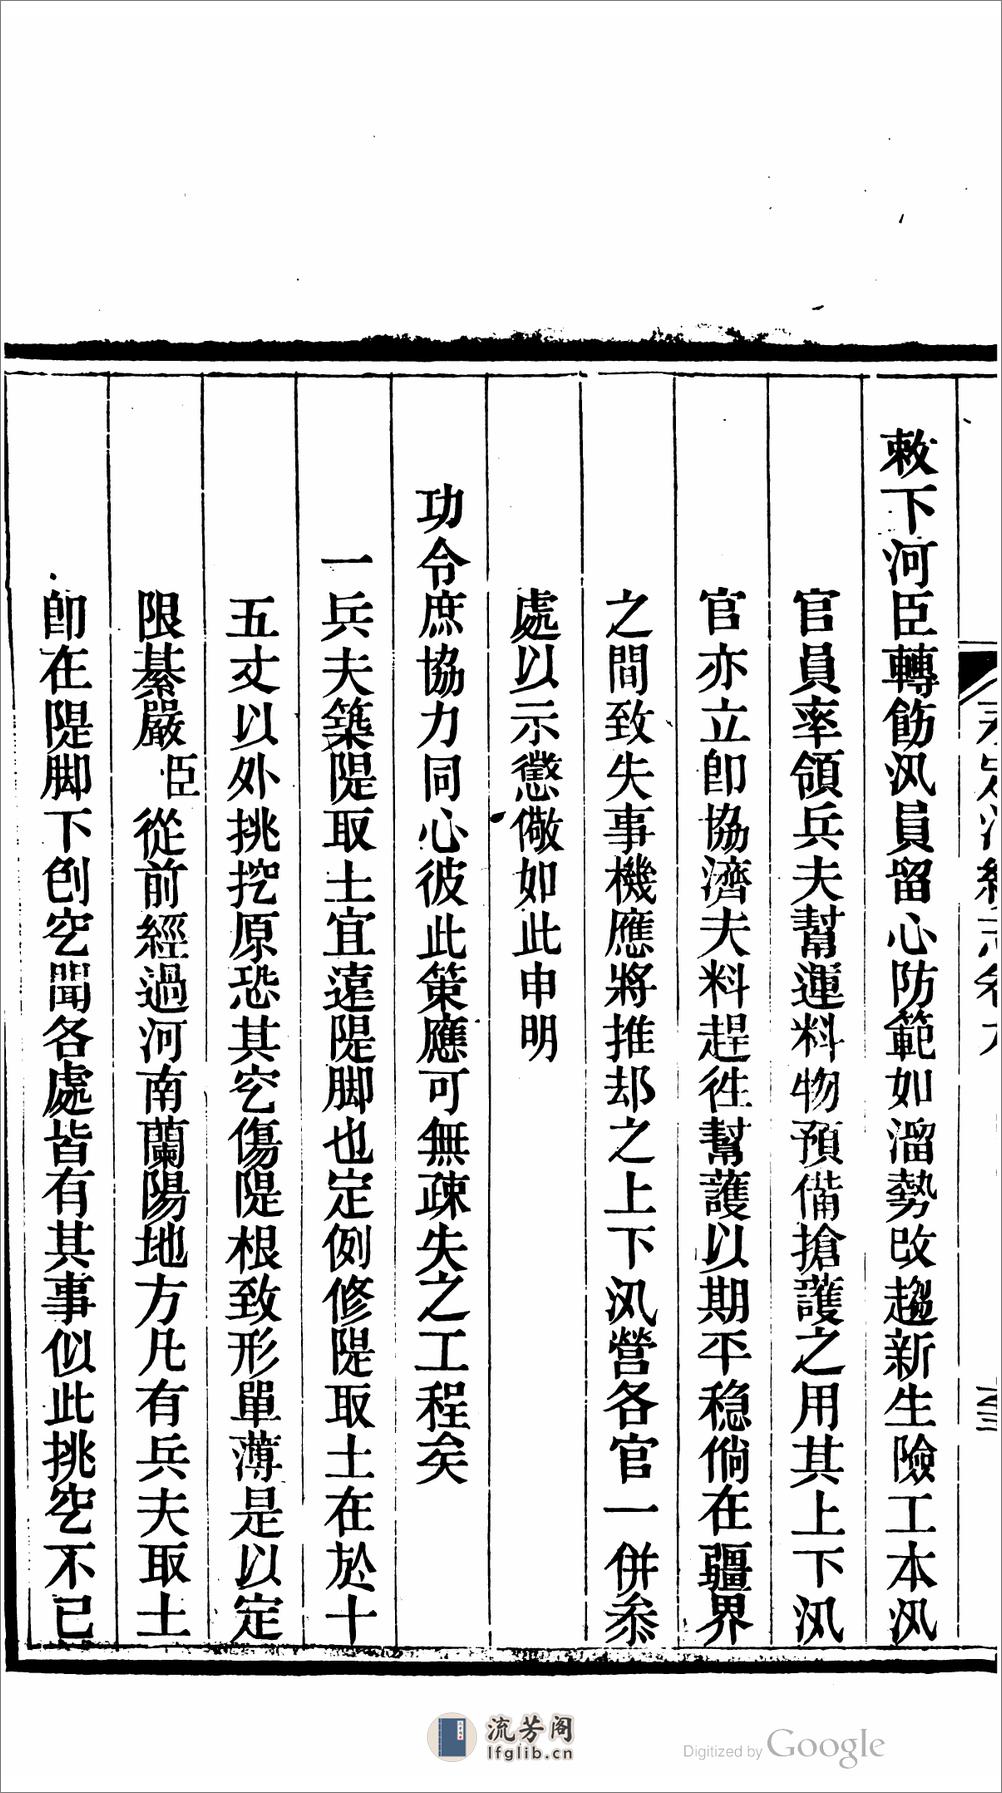 敕下河臣轉飭汛員留心防範如溜勢改趨新生險工本汛
官員率領兵夫幫運料物預備搶護之用其上下汛
官亦立卽協濟夫料趕徃幫護以期平稳倘在疆界
之間致失事機應將推却之上下汛營各官一併叅
處以示懲儆如此申明
功令庶協力同心彼此策應可無疎失之工程矣
一兵夫築隄取土宜遠隄脚也定例修隄取土在於十
五丈以外挑挖原恐其空傷隄根致形單薄是以定
限綦嚴臣從前經過河南蘭陽地方凡有兵夫取土
卽在隄脚下刨空聞各處皆有其事似此挑空不已
流芳阁
lfglib.cn
Digitized by Google